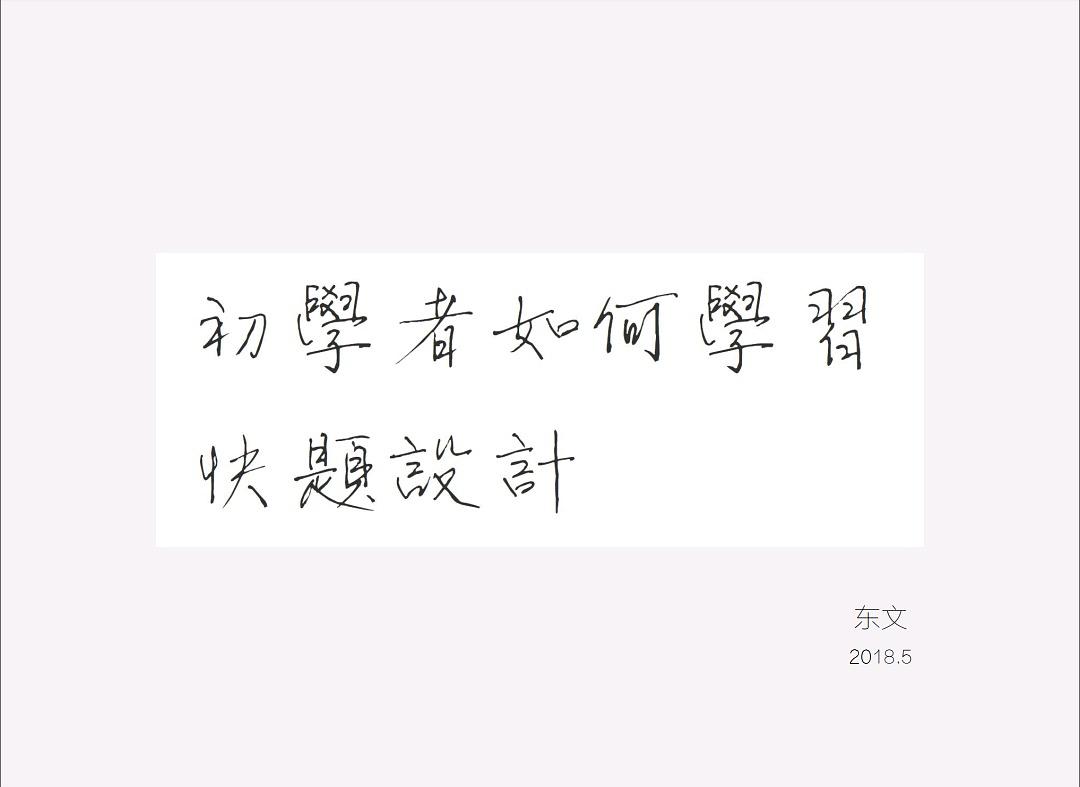 初學者如何學習
快題設計
东文
2018.5